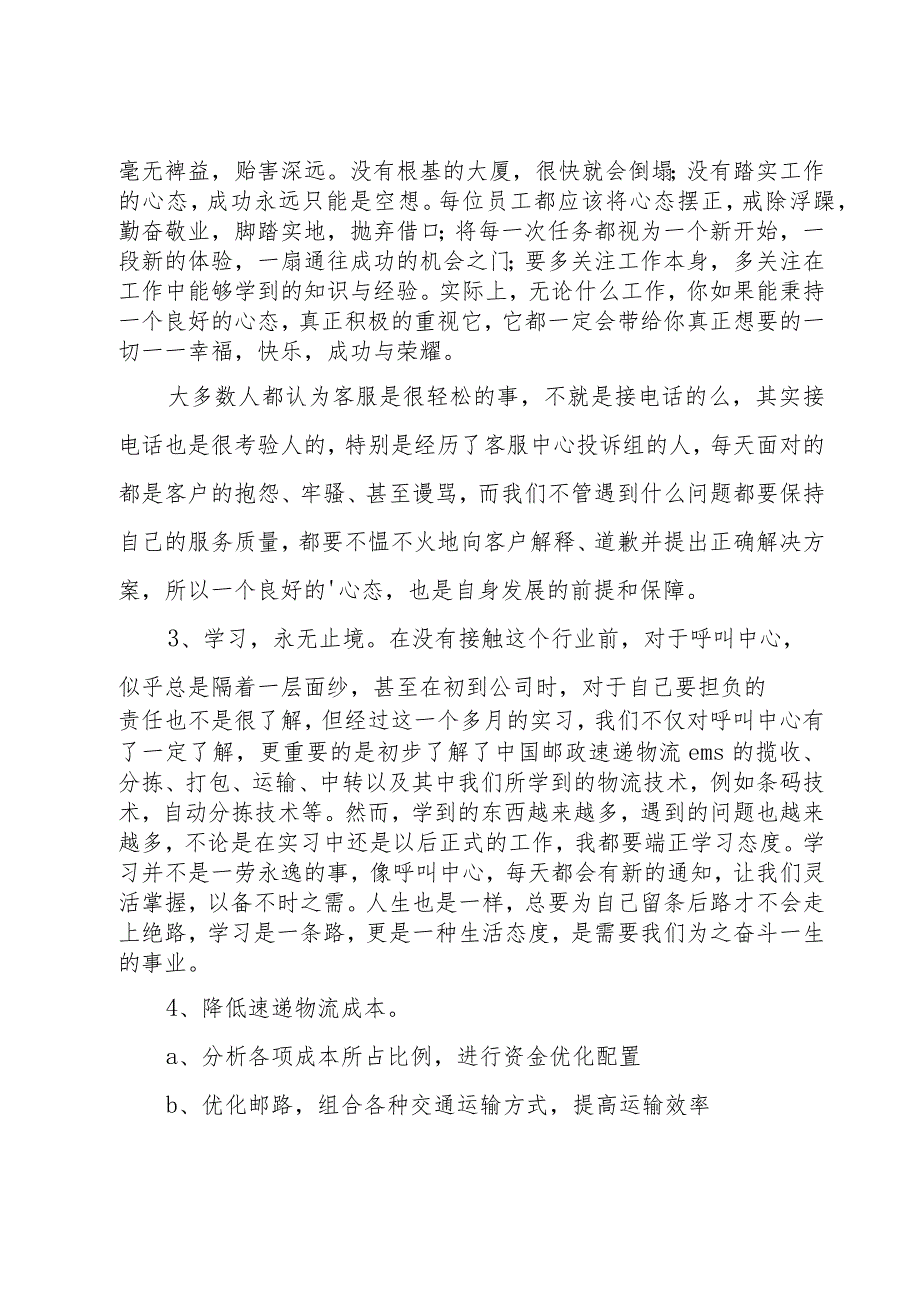 毫无裨益，贻害深远。没有根基的大厦，很快就会倒塌；没有踏实工作
的心态，成功永远只能是空想。每位员工都应该将心态摆正，戒除浮躁，
勤奋敬业，脚踏实地，抛弃借口；将每一次任务都视为一个新开始，一
段新的体验，一扇通往成功的机会之门；要多关注工作本身，多关注在
工作中能够学到的知识与经验。实际上，无论什么工作，你如果能秉持
一个良好的心态，真正积极的重视它，它都一定会带给你真正想要的一
切一一幸福，快乐，成功与荣耀。
大多数人都认为客服是很轻松的事，不就是接电话的么，其实接
电话也是很考验人的，特别是经历了客服中心投诉组的人，每天面对的
都是客户的抱怨、牢骚、甚至谩骂，而我们不管遇到什么问题都要保持
自己的服务质量，都要不愠不火地向客户解释、道歉并提出正确解决方
案，所以一个良好的'心态，也是自身发展的前提和保障。
3、学习，永无止境。在没有接触这个行业前，对于呼叫中心，
似乎总是隔着一层面纱，甚至在初到公司时，对于自己要担负的
责任也不是很了解，但经过这一个多月的实习，我们不仅对呼叫中心有
了一定了解，更重要的是初步了解了中国邮政速递物流ems的揽收、
分拣、打包、运输、中转以及其中我们所学到的物流技术，例如条码技
术，自动分拣技术等。然而，学到的东西越来越多，遇到的问题也越来
越多，不论是在实习中还是以后正式的工作，我都要端正学习态度。学
习并不是一劳永逸的事，像呼叫中心，每天都会有新的通知，让我们灵
活掌握，以备不时之需。人生也是一样，总要为自己留条后路才不会走
上绝路，学习是一条路，更是一种生活态度，是需要我们为之奋斗一生
的事业。
4、降低速递物流成本。
a、分析各项成本所占比例，进行资金优化配置
b、优化邮路，组合各种交通运输方式，提高运输效率